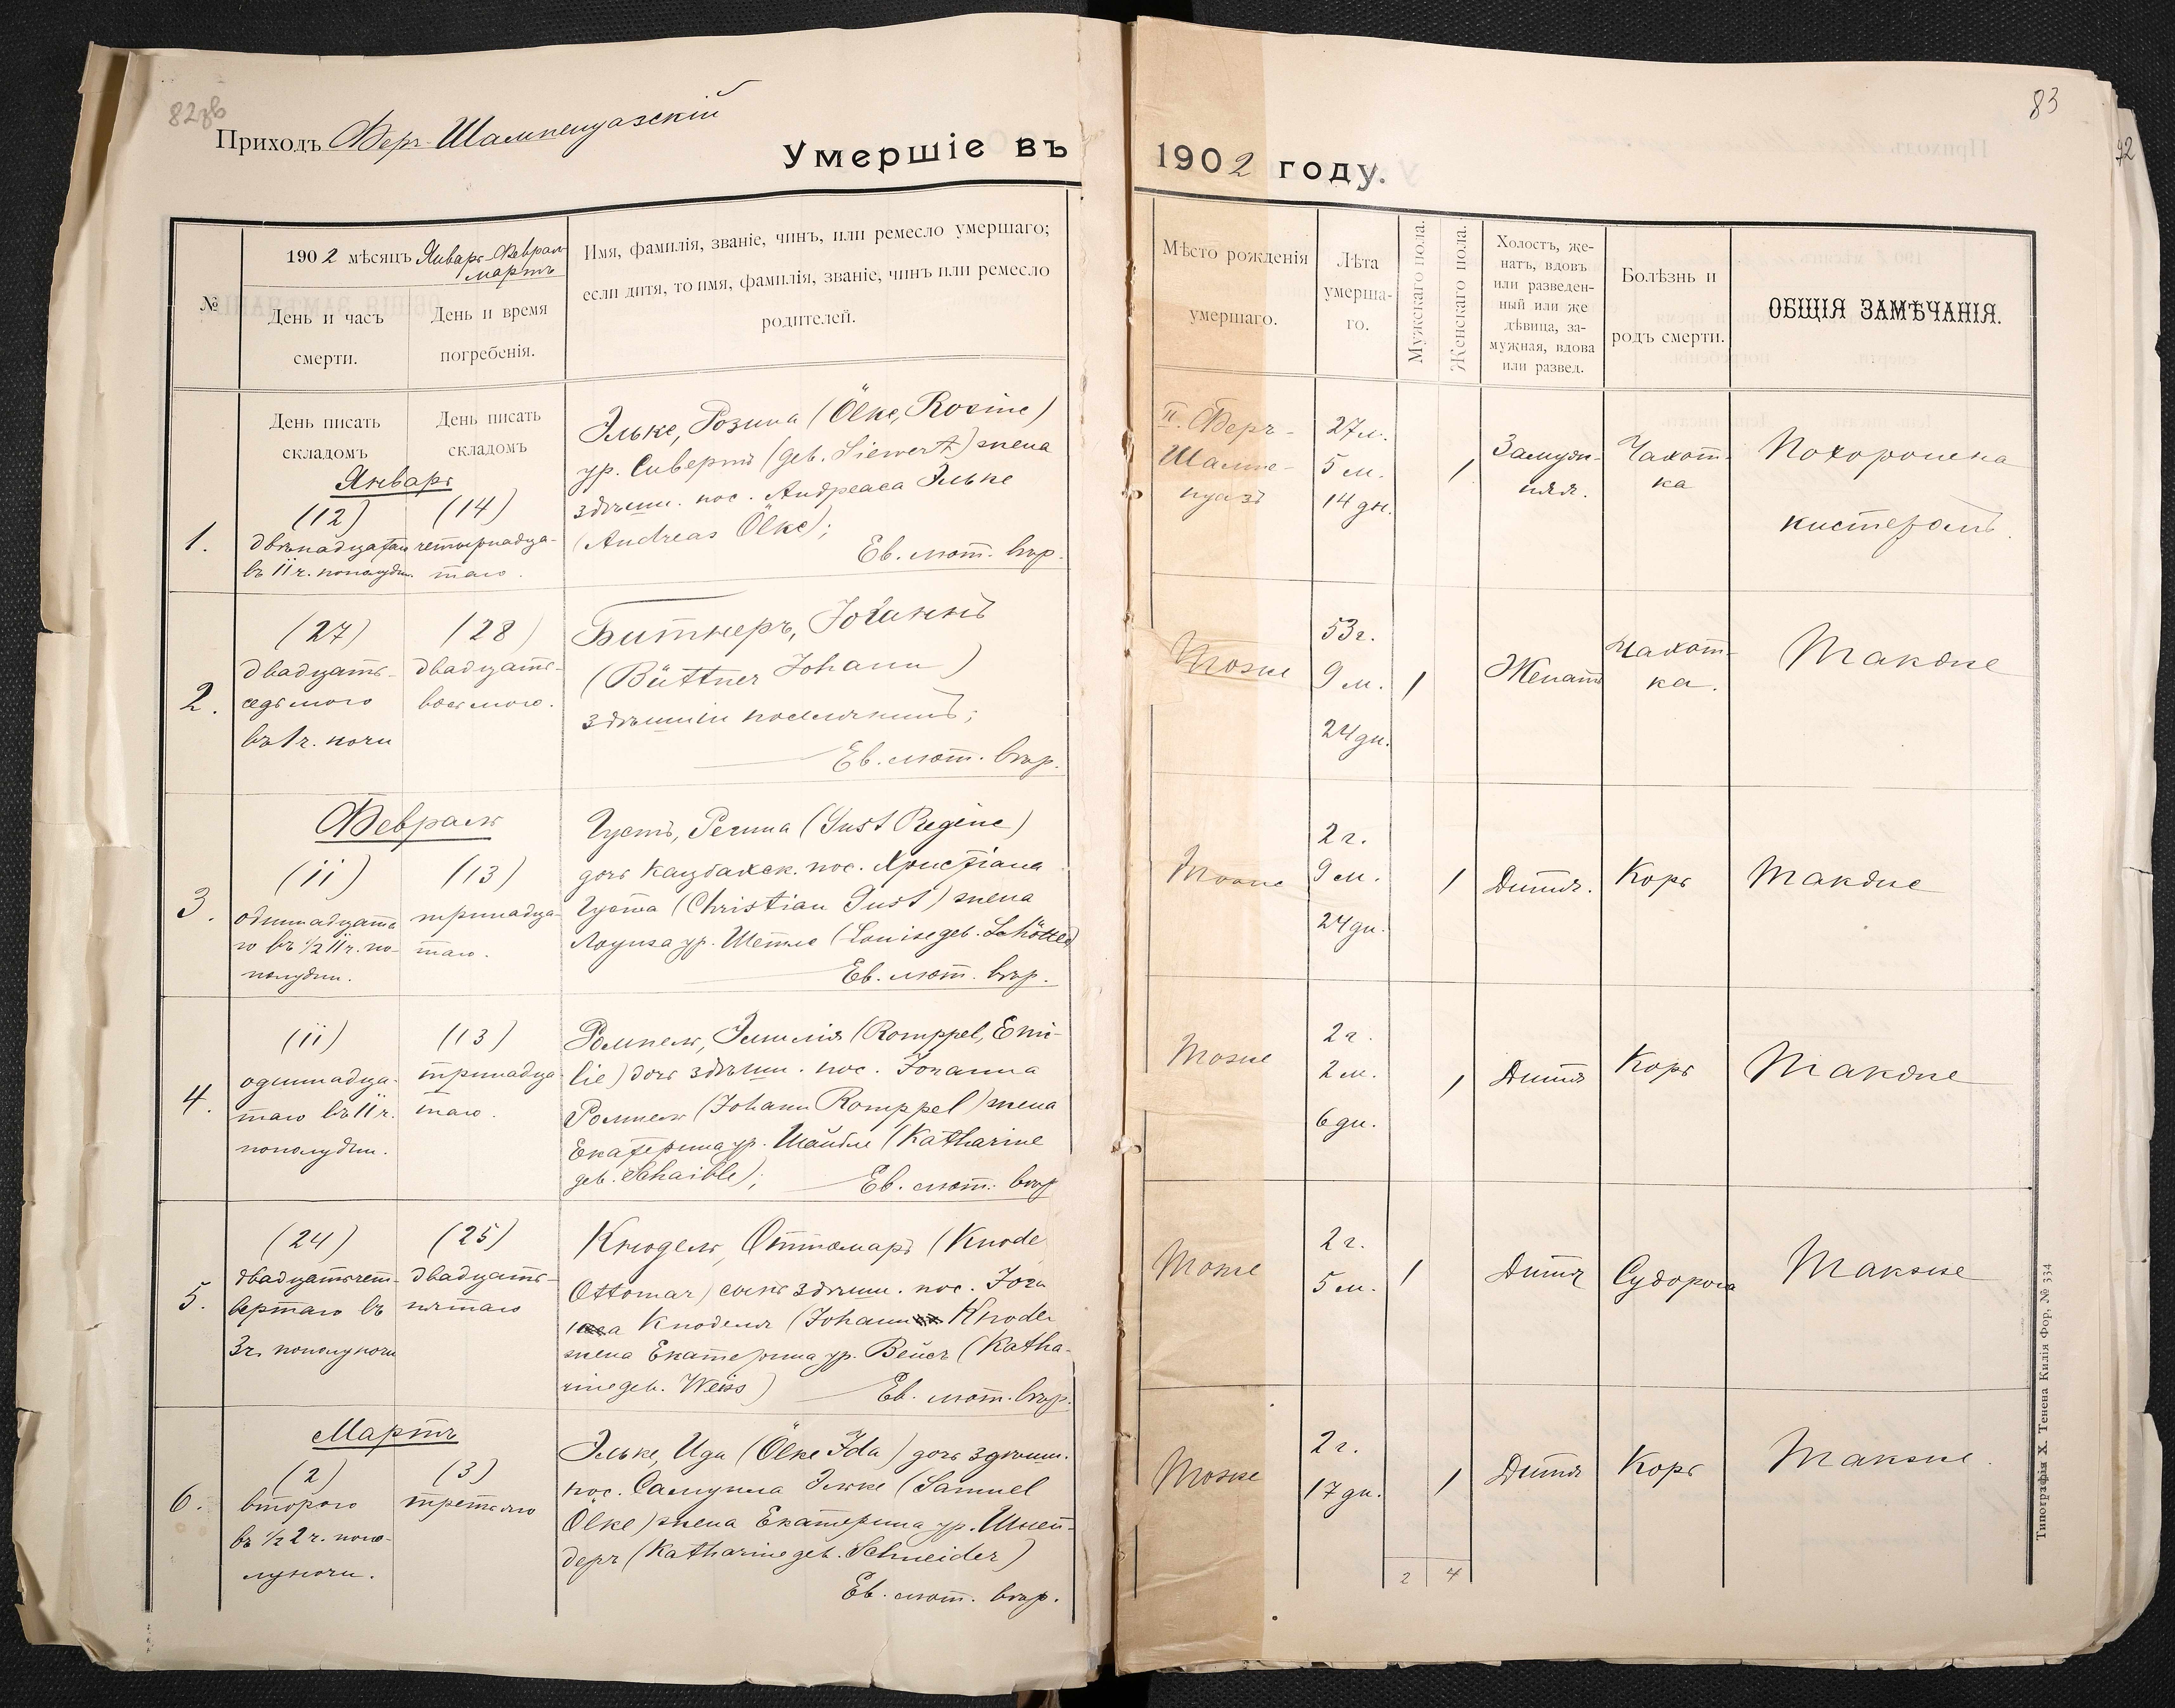 82об
Приходъ Феръ-Шампенуазскій
Умершіе въ
№
1902 мѣсяцъ Январь-Феврал-
мартъ
День и часъ
смерти.
День и время
погребенія.
Имя, фамилія, званіе, чинъ, или ремесло умершаго;
если дитя, то имя, фамилія, званіе, чинъ или ремесло
родителей.
День писать
складомъ
День писать
складомъ
Январь
1.
(12)
двѣнадцатаго
въ 11 ч. пополудни.
(14)
четырнадца-
таго.
Эльке, Розина (Ölke, Rosine)
ур. Сивертъ (geb. Siewert) жена
здѣшн. пос. Андреаса Эльке
(Andreas Ölke);
Ев. лют. вѣр.
2.
(27)
двадцать-
седьмого
въ 1 ч. ночи
(28)
двадцать-
восьмого.
Битнеръ, Іоганнъ
(Büttner Johann)
здѣшній поселянинъ;
Ев. лют. вѣр.
Февраль
3.
(11)
одиннадцата
го въ ½ 11 ч. по-
полудни.
(13)
тринадца-
таго.
Густъ, Регина (Just Regine)
дочь кацбахск. пос. Христіана
Густа (Christian Just) жена
Луиза ур. Шетле (Louise geb. Schöttle)
Ев. лют. вѣр.
4.
(11)
одиннадца-
таго въ 11 ч.
пополудни.
(13)
тринадца
таго.
Ромпель, Эмилія (Romppel, Emi-
lie) дочь здѣшн. пос. Іоганна
Ромпель (Johann Romppel) жена
Екатерина ур. Шайбле (Katharine
geb. Schaible);
Ев. лют. вѣр
5.
(24)
двадцатьчет-
вертаго въ
3 ч. пополуночи
(25)
двадцать-
пятаго
Кнодель, Оттомаръ (Knode
Ottomar) сынъ здѣшн. пос. Іога
нна Кноделя (Johann Knodel
жена Екатерина ур. Вейсъ (Katha-
rine geb. Weiss)
Ев. лют. вѣр.
Мартъ
6.
(2)
второго
въ ½ 2 ч. попо-
луночи.
(3)
третьяго
Эльке, Ида (Ölke Ida) дочь здѣшн.
пос. Самуила Эльке (Samuel
Ölke) жена Екатерина ур. Шней-
деръ (Katharine geb. Schneider)
Ев. лют. вѣр.
83
92
1902 году.
Мѣсто рожденія
умершаго.
Лѣта
умерша-
го.
Мужскаго пола.
Женскаго пола.
Холостъ, же-
натъ, вдовъ
или разведен-
ный или же
дѣвица, за-
мужная, вдова
или развед.
Болѣзнь и
родъ смерти.
ОБЩІЯ ЗАМѢЧАНІЯ.
п. Феръ-
Шампе-
нуазъ
27 л.
5 м.
14 дн.
1
Замуж-
няя.
Чахот-
ка
Похоронена
кистеромъ.
Тоже
53 г.
9 м.
24 дн.
1
Женатъ
Чахот-
ка.
Также
Тоже
2 г.
9 м.
24 дн.
1
Дитя.
Корь
Также
Тоже
2 г.
2 м.
6 дн.
1
Дитя
Корь
Также
Тоже
2 г.
5 м.
1
Дитя
Судорога
Также
Тоже
2 г.
17 дн.
1
Дитя
Корь
Также.
2 4
Типографія Х. Тенена Килія Фор, № 334